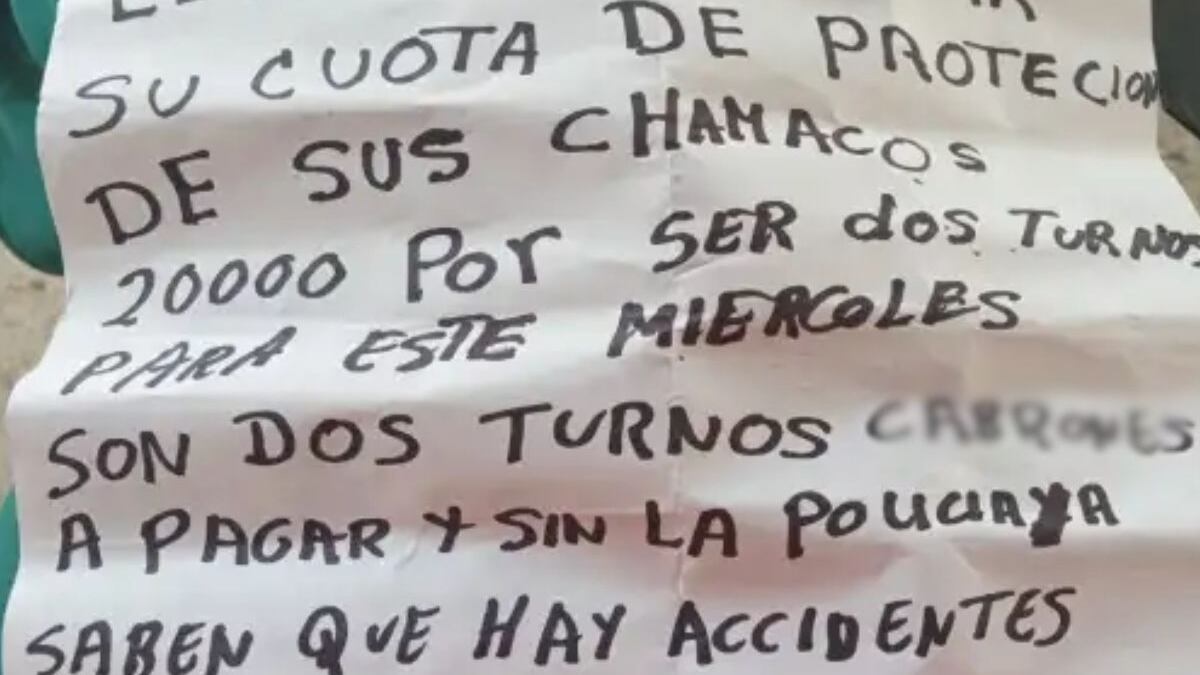 SU CUOTA DE PROTECION
DE SUS CHAMACOS
20000 POr SER dos TURNOS
PARA ESTE MIERCOLES
SON DOS TURNOS CABRONES
A PAGAR Y SIN LA POLICIA YA
SABEN QUE HAY ACCIDENTES